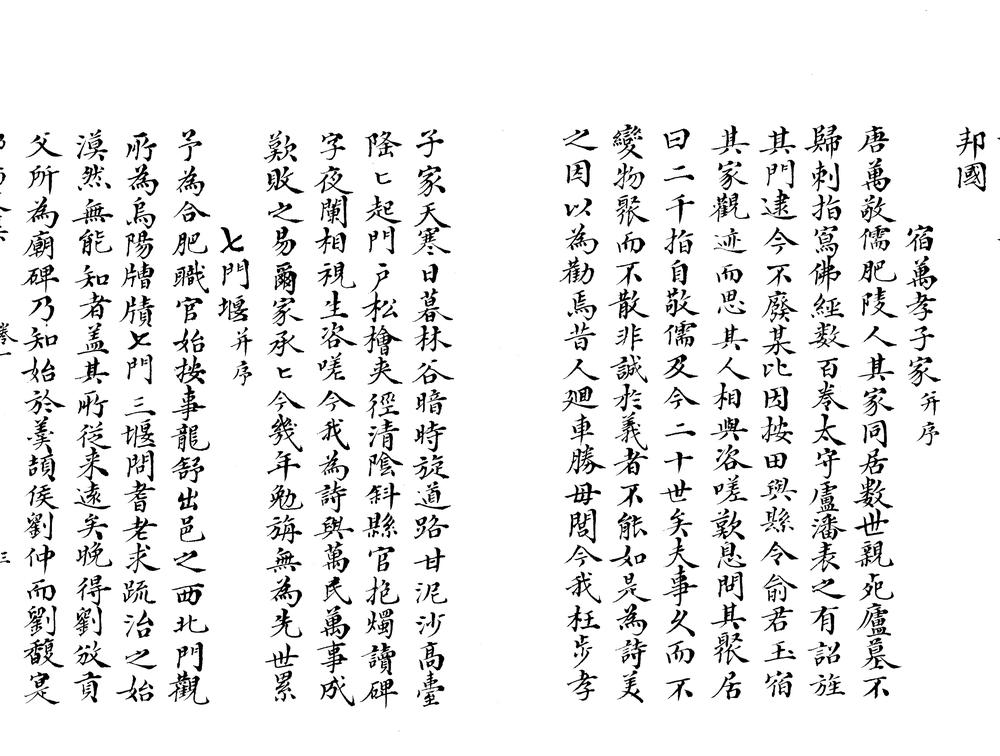 邦國
宿萬孝子家并序
唐萬敬儒肥陵人其家同居數世親死廬墓不
歸刺指寫佛經數百卷太守盧潘表之有詔旌
其門逮今不廢某比因按田與縣令俞君玉宿
其家觀迹而思其人相與咨嗟歎息問其聚居
曰二千指自敬儒及今二十世矣夫事久而不
變物聚而不散非誠於義者不能如是為詩美
之因以為勸焉昔人廻車勝毋閭今我枉步孝
子家天寒日暮林谷暗時旋道路甘泥沙高臺
隆匕起門戶松檜夾徑清陰斜縣官抱燭讀碑
字夜闌相視生咨嗟今我為詩與萬民萬事成
歎敗之易爾家承匕今幾年勉旃無為先世累
七門堰并序
予為合肥職官始按事龍舒出邑之西北門觀
所為烏陽牘牘七門三堰問耆老求疏治之始
漠然無能知者盖其所從来遠矣晚得劉攽貢
父所為廟碑乃知始於羹頡侯劉仲而劉馥寔
卷一
三